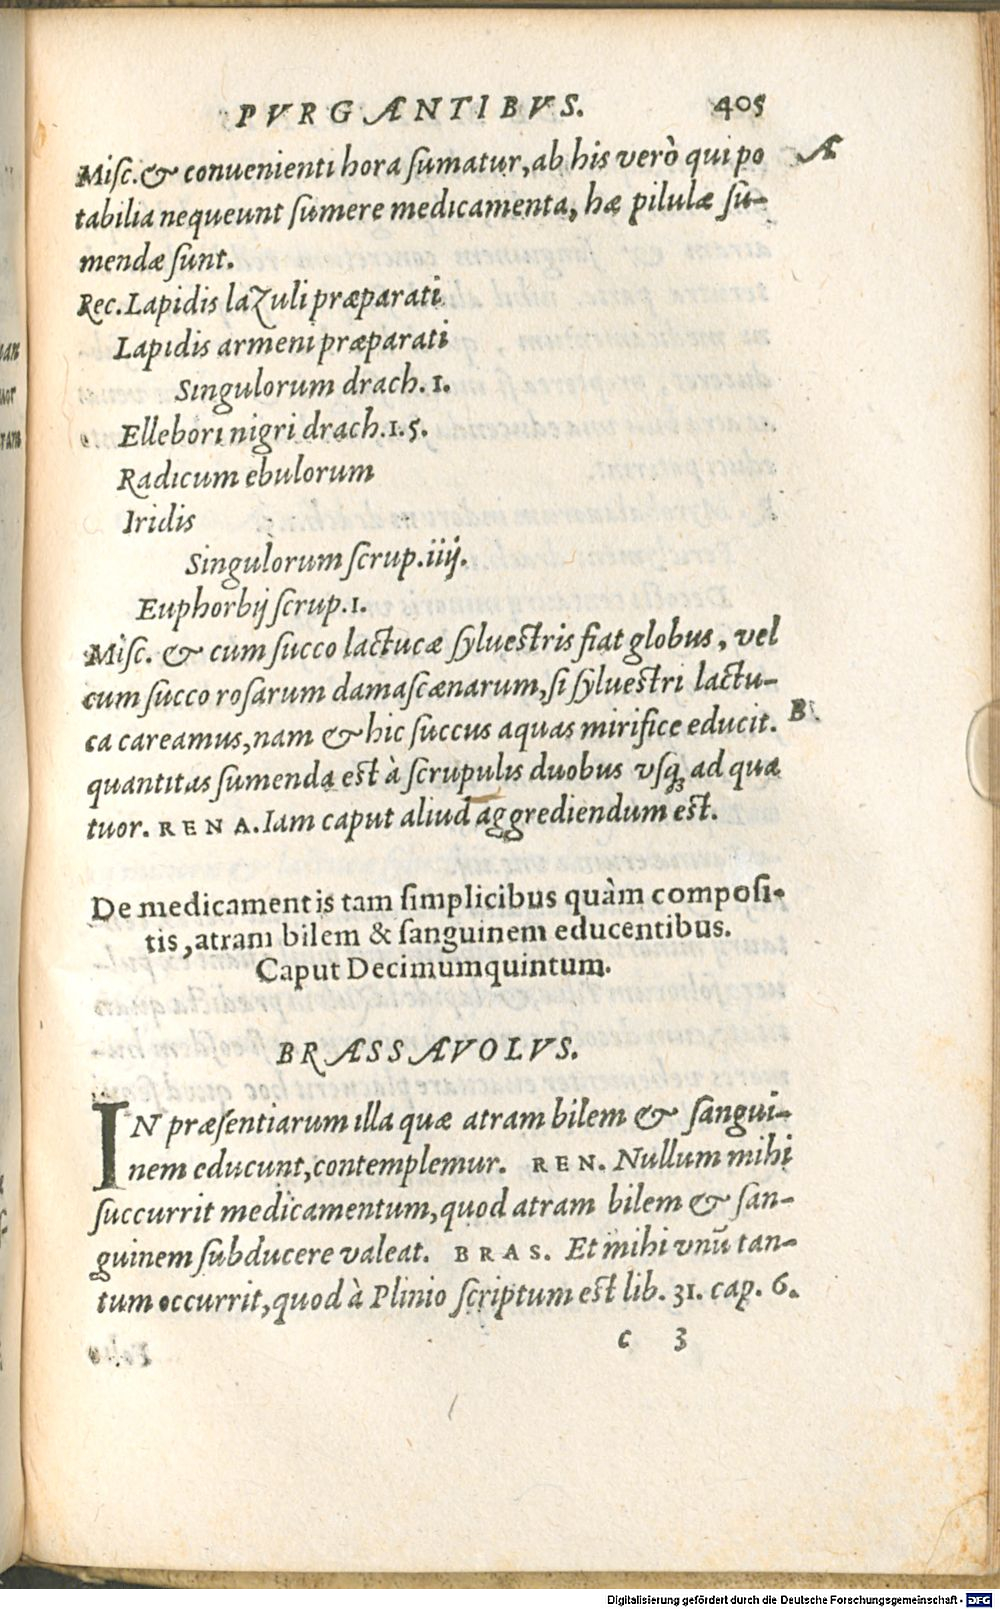 PVRGANTIBVS. 405
Misc. & conuenienti hora sumatur, ab his verò qui po A
tabilia nequeunt sumere medicamenta, hæ pilulæ su-
mendæ sunt.
Rec. Lapidis lazuli præparati
Lapidis armeni præparati
Singulorum drach. 1.
Ellebori nigri drach. 1. 5.
Radicum ebulorum
Iridis
Singulorum scrup. iiij.
Euphorbij scrup. 1.
Misc. & cum succo lactucæ syluestris fiat globus, vel
cum succo rosarum damascænarum, si syluestri lactu-
ca careamus, nam & hic succus aquas mirifice educit. B
quantitas sumenda est à scrupulis duobus vsq; ad qua
tuor. RENA. Iam caput aliud aggrediendum est.
De medicamentis tam simplicibus quàm composi-
tis, atram bilem & sanguinem educentibus.
Caput Decimumquintum.
BRASSAVOLVS.
IN præsentiarum illa quæ atram bilem & sangui-
nem educunt, contemplemur. REN. Nullum mihi
succurrit medicamentum, quod atram bilem & san-
guinem subducere valeat. BRAS. Et mihi vnū tan-
tum occurrit, quod à Plinio scriptum est lib. 31. cap. 6.
c 3
Digitalisierung gefördert durch die Deutsche Forschungsgemeinschaft - DFG